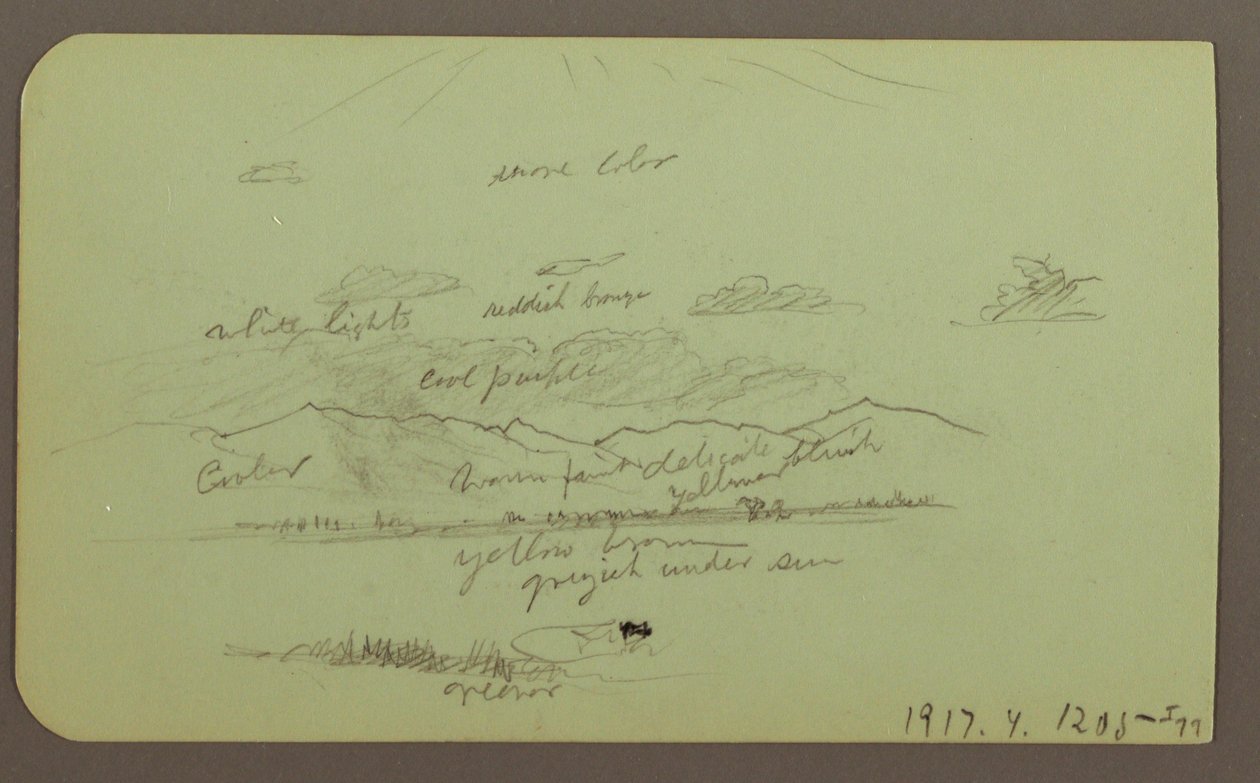 color
white lights
reddish
cool purple
Cooler
warm faint delicate bluish
yellower
yellow brown
greyish under sun
greener
1917.4.